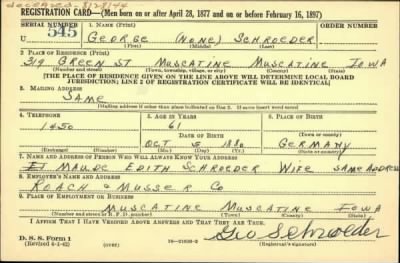 deceased - 8/28/44
REGISTRATION CARD—(Men born on or after April 28, 1877 and on or before February 16, 1897)
SERIAL NUMBER 1. NAME (Print) ORDER NUMBER
545 GEORGE (NONE) SCHROEDER
(First) (Middle) (Last)
2. PLACE OF RESIDENCE (Print)
319 GREEN ST MUSCATINE MUSCATINE IOWA
(Number and street) (Town, township, village, or city) (County) (State)
[THE PLACE OF RESIDENCE GIVEN ON THE LINE ABOVE WILL DETERMINE LOCAL BOARD
JURISDICTION; LINE 2 OF REGISTRATION CERTIFICATE WILL BE IDENTICAL]
3. MAILING ADDRESS
SAME
[Mailing address if other than place indicated on line 2. If same insert word same]
4. TELEPHONE 5. AGE IN YEARS 6. PLACE OF BIRTH
1450 61
DATE OF BIRTH (Town or county)
OCT 5 1880 GERMANY
(Exchange) (Number) (Mo.) (Day) (Yr.) (State or country)
7. NAME AND ADDRESS OF PERSON WHO WILL ALWAYS KNOW YOUR ADDRESS
MAUDE EDITH SCHROEDER WIFE SAME ADDRESS
8. EMPLOYER'S NAME AND ADDRESS
ROACH & MUSSER CO
9. PLACE OF EMPLOYMENT OR BUSINESS
MUSCATINE MUSCATINE IOWA
(Number and street or R. F. D. number) (Town) (County) (State)
I AFFIRM THAT I HAVE VERIFIED ABOVE ANSWERS AND THAT THEY ARE TRUE.
D. S. S. Form 1
(Revised 4-1-42) (over) 16-21630-2
Geo Schroeder
(Registrant's signature)